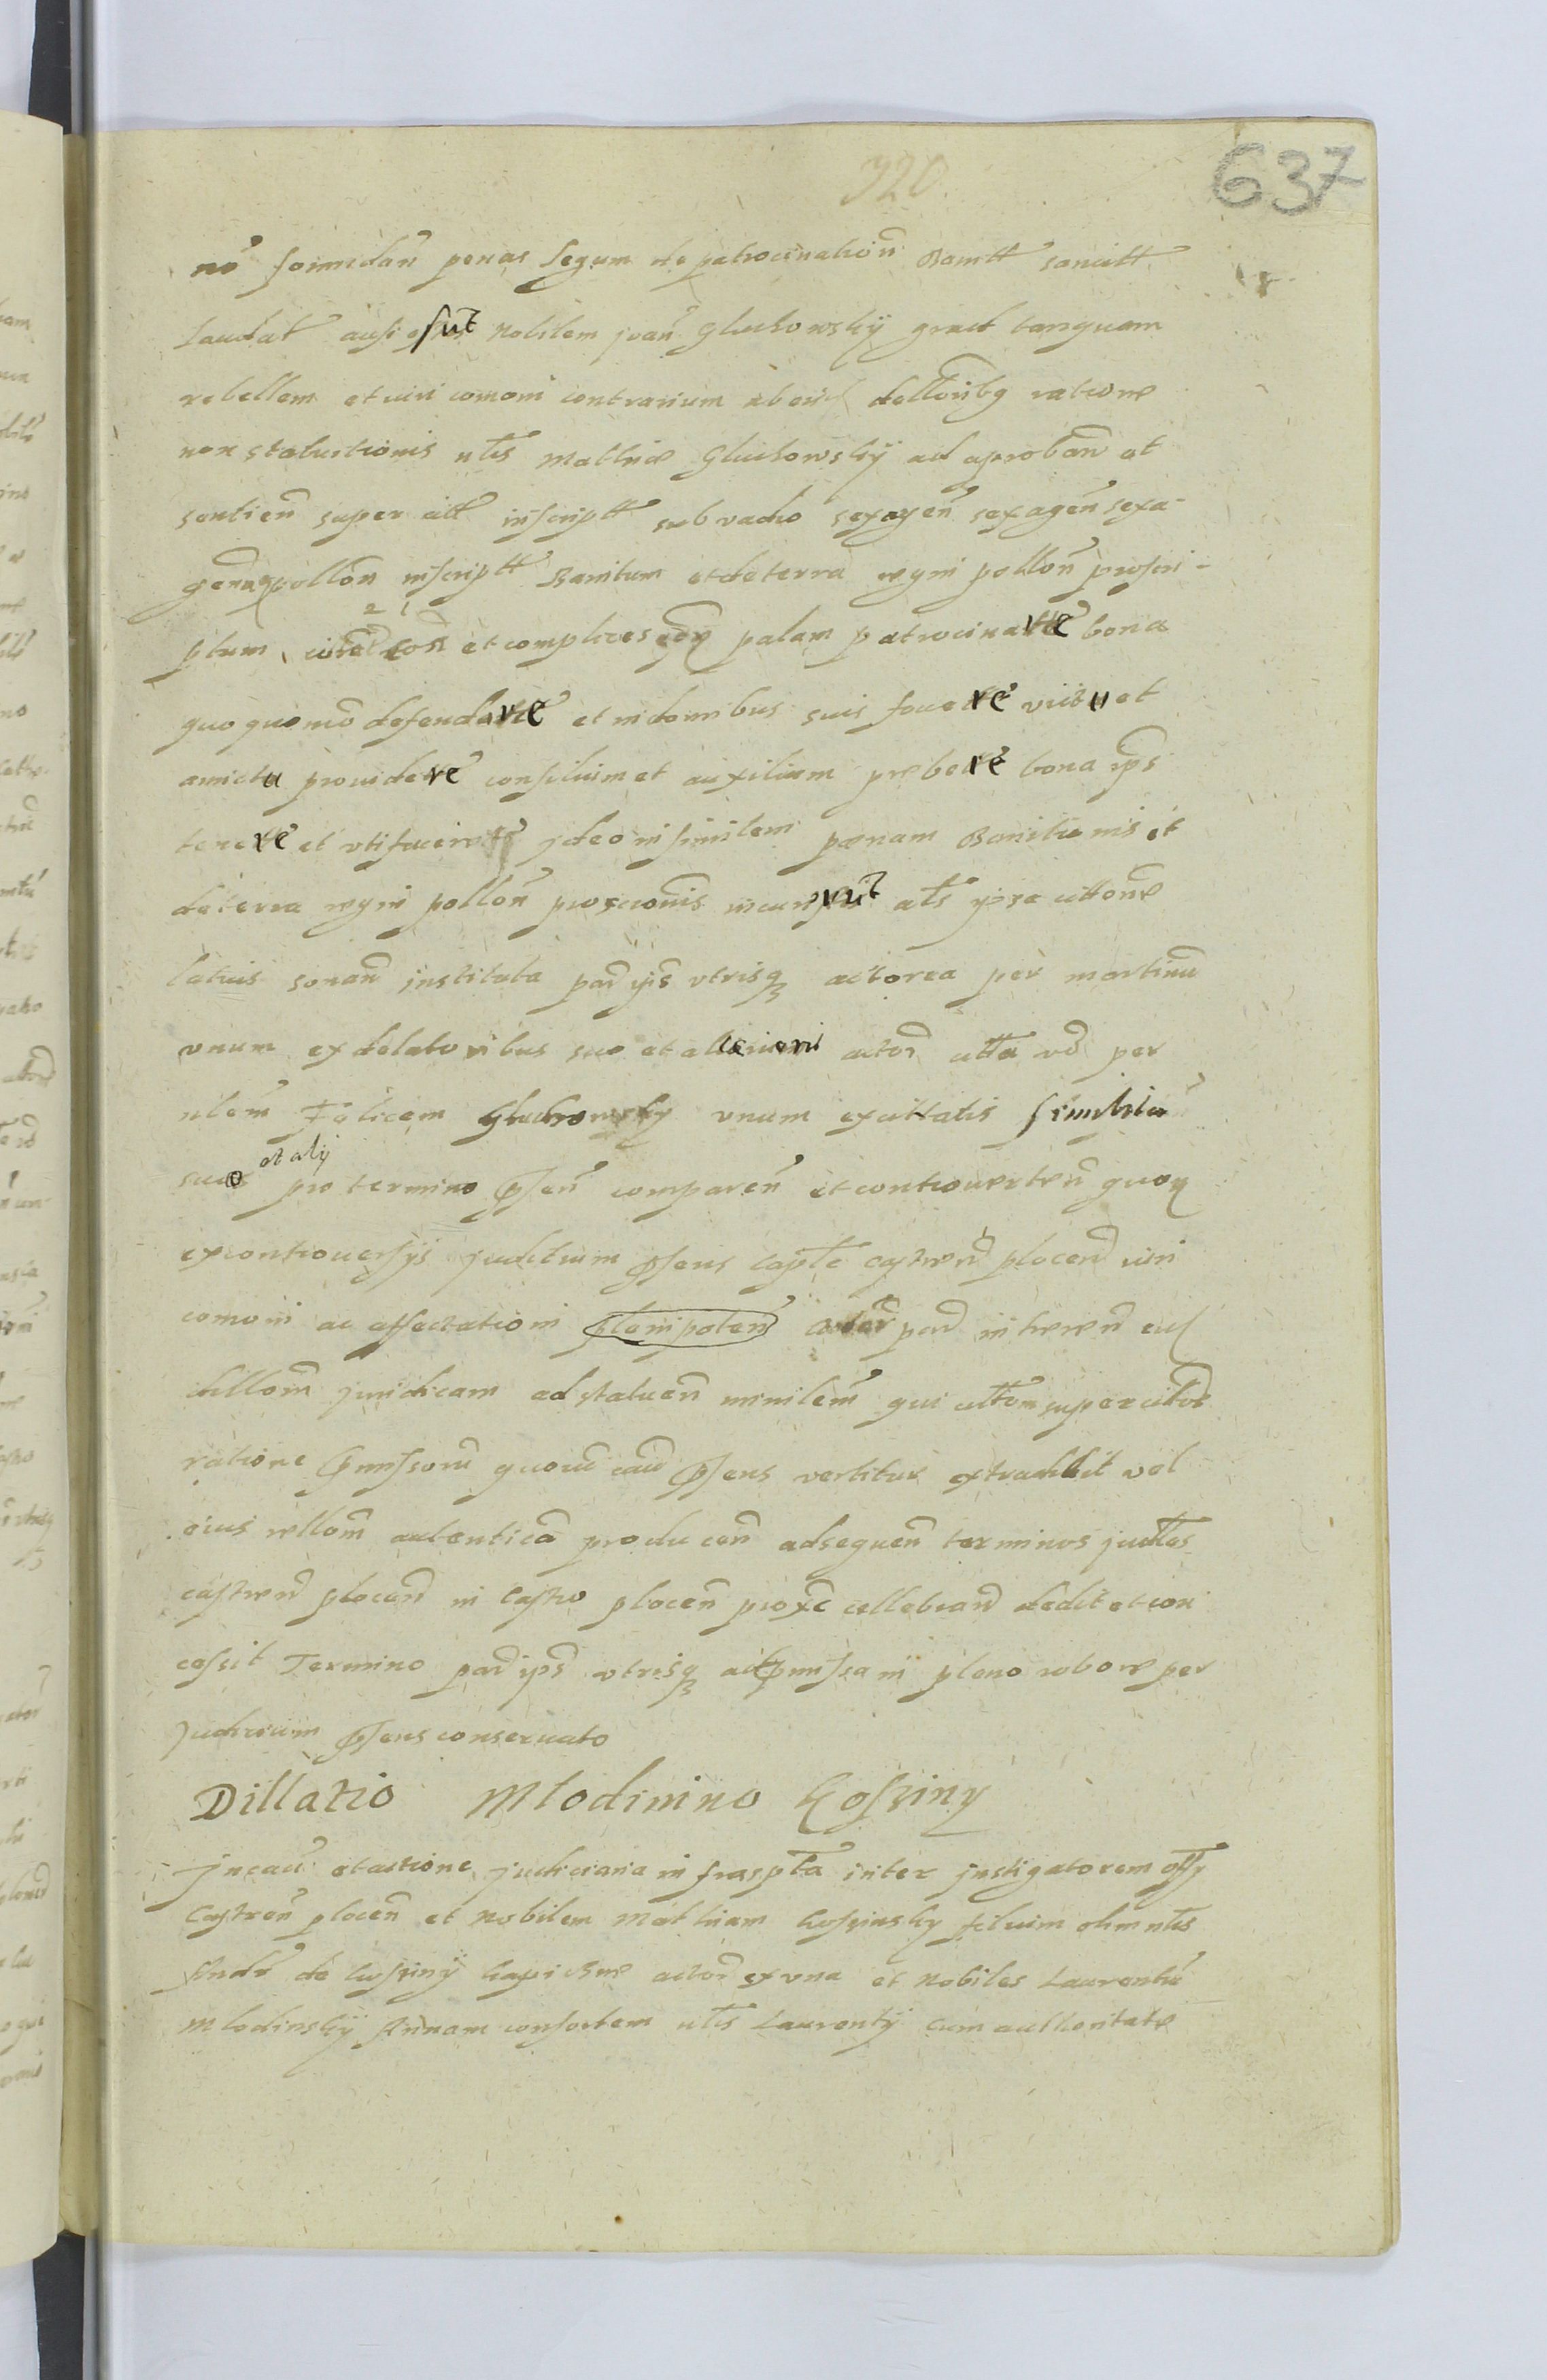 637
320
no formidan penas legum de patrocination Banitt sancitt
laudat ausi sut Nobilem joan Gluchowskÿ gnect tanquam
rebellem et iuri comoni contrarium ab eisd dellatoribq ratione
non statuitionis nlis Mathie Gluchowskÿ ad aprobam et
sentien super illt inscriptt sub vadio sexagen sexagen sexa-
genaq pollon inscriptt Banitum et de terra regni pollon proscri-
ptum et complices palam patrocinare bona
quo quo mo defendare et in domibus suis fouere victu et
amictu prouidere consilium et auxilium prebere bona ips
tenere et vtifuere jdeo in similem pœnam Banitionis et
de terra regni pollon proscrionis als ipsa cittone
latius sonan instituta par ips vtrisq actorea per martinu
vnum ex delatoribus suo et actor citta vo per
nlem Felicem Gluchowsky vnum ex cittatis similitu
suo et alÿ pro termino psen comparen et controuerten quoq
ex controuersÿs juditium psens Captle castren plocen iuri
comoni ac affectationi plenipoten actor par inheren eisd
dillom juridicam ad statuen minilem qui cittom super citatos
ratione pmissoru quoru cau psens vertitur extradidit vel
eius rellom autentica producen ad sequen terminos judles
castren plocen in Castro plocen proxe cellebran dedit et con
cessit Termino par ips vtrisq ad pmissa in pleno robore per
Judicium psens conseruato
Dillatio Mlodinino Kossiny
Jn cau et actione judiciaria infrasptа inter jnstigatorem offÿ
Castren plocen et Nobilem Mathiam Kossinsky filium olim nlis
Andr de Kossinÿ actor ex vna et Nobiles Laurentiu
Mlodinskÿ Annam consortem nlis Laurentÿ cum authoritate